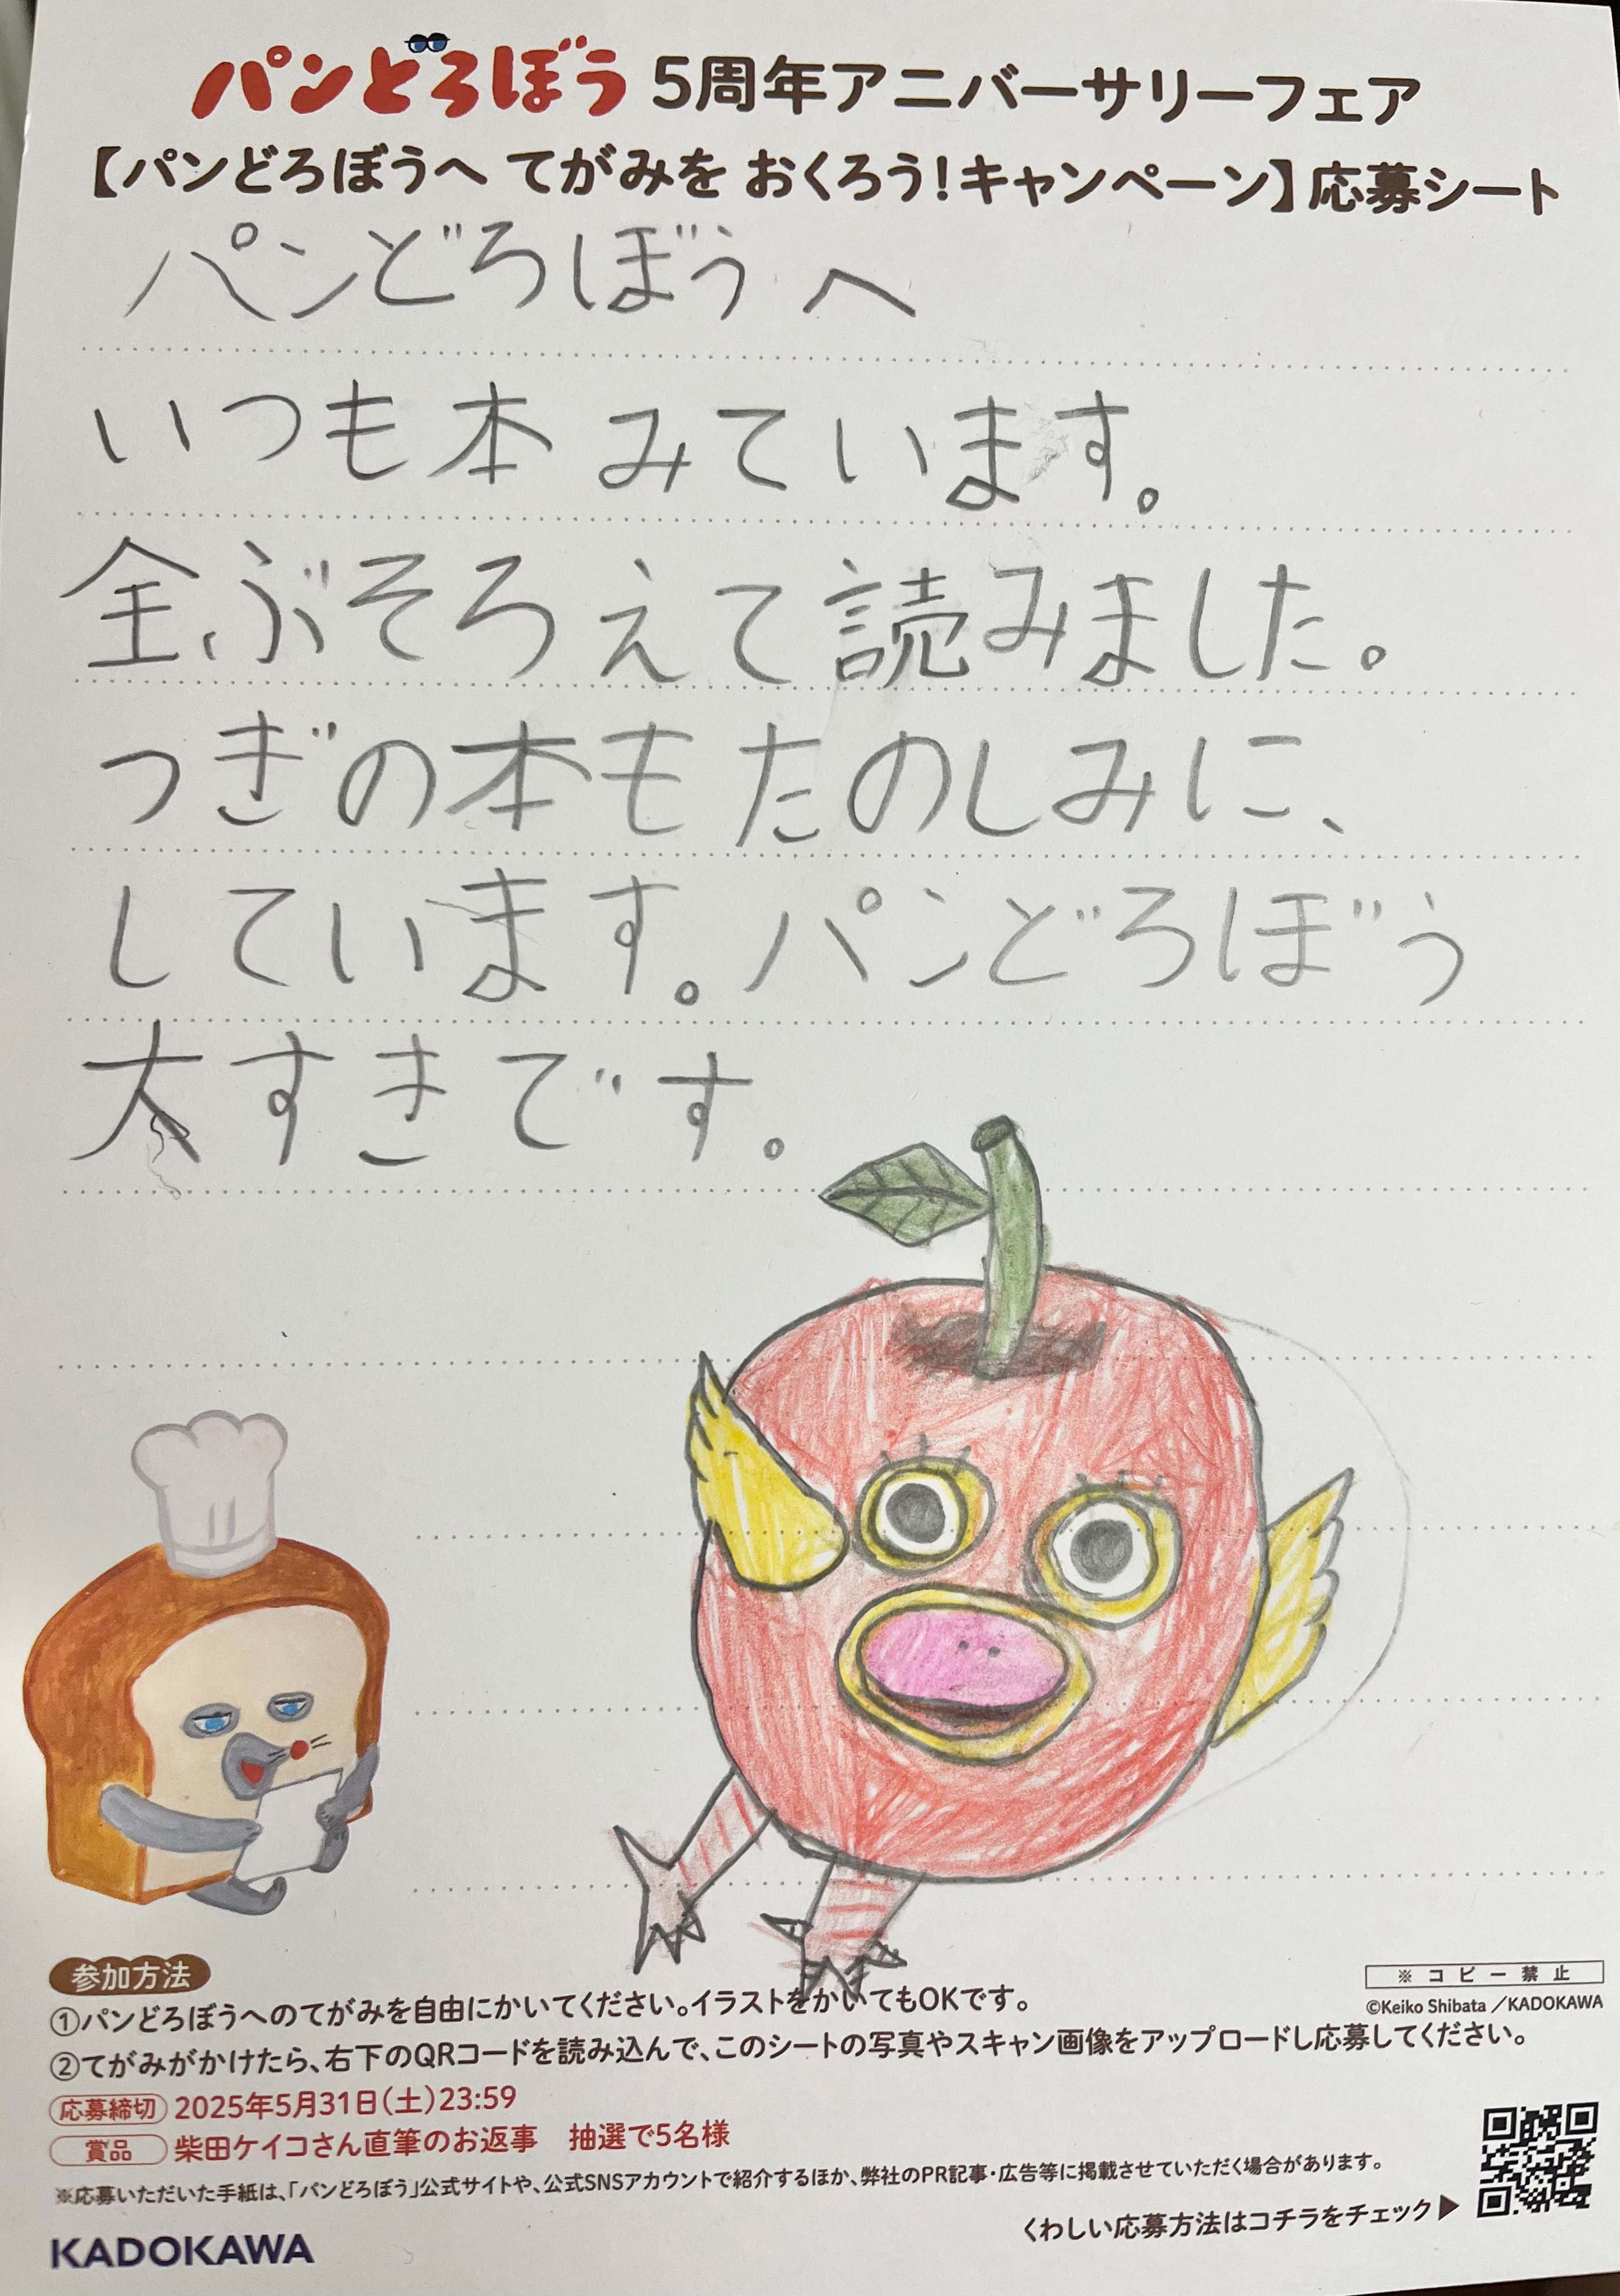 パンどろぼう 5周年アニバーサリーフェア
【パンどろぼうへ てがみを おくろう!キャンペーン】応募シート
パンどろぼうへ
いつも本 みています。
全ぶそろえて読みました。
つぎの本もたのしみに、
しています。パンどろぼう
大すきです。
参加方法
①パンどろぼうへのてがみを自由にかいてください。イラストをかいてもOKです。
②てがみがかけたら、右下のQRコードを読み込んで、このシートの写真やスキャン画像をアップロードし応募してください。
応募締切 2025年5月31日(土)23:59
賞品 柴田ケイコさん直筆のお返事 抽選で5名様
※応募いただいた手紙は、「パンどろぼう」公式サイトや、公式SNSアカウントで紹介するほか、弊社のPR記事・広告等に掲載させていただく場合があります。
くわしい応募方法はコチラをチェック▶
KADOKAWA
※コピー禁止
©Keiko Shibata／KADOKAWA